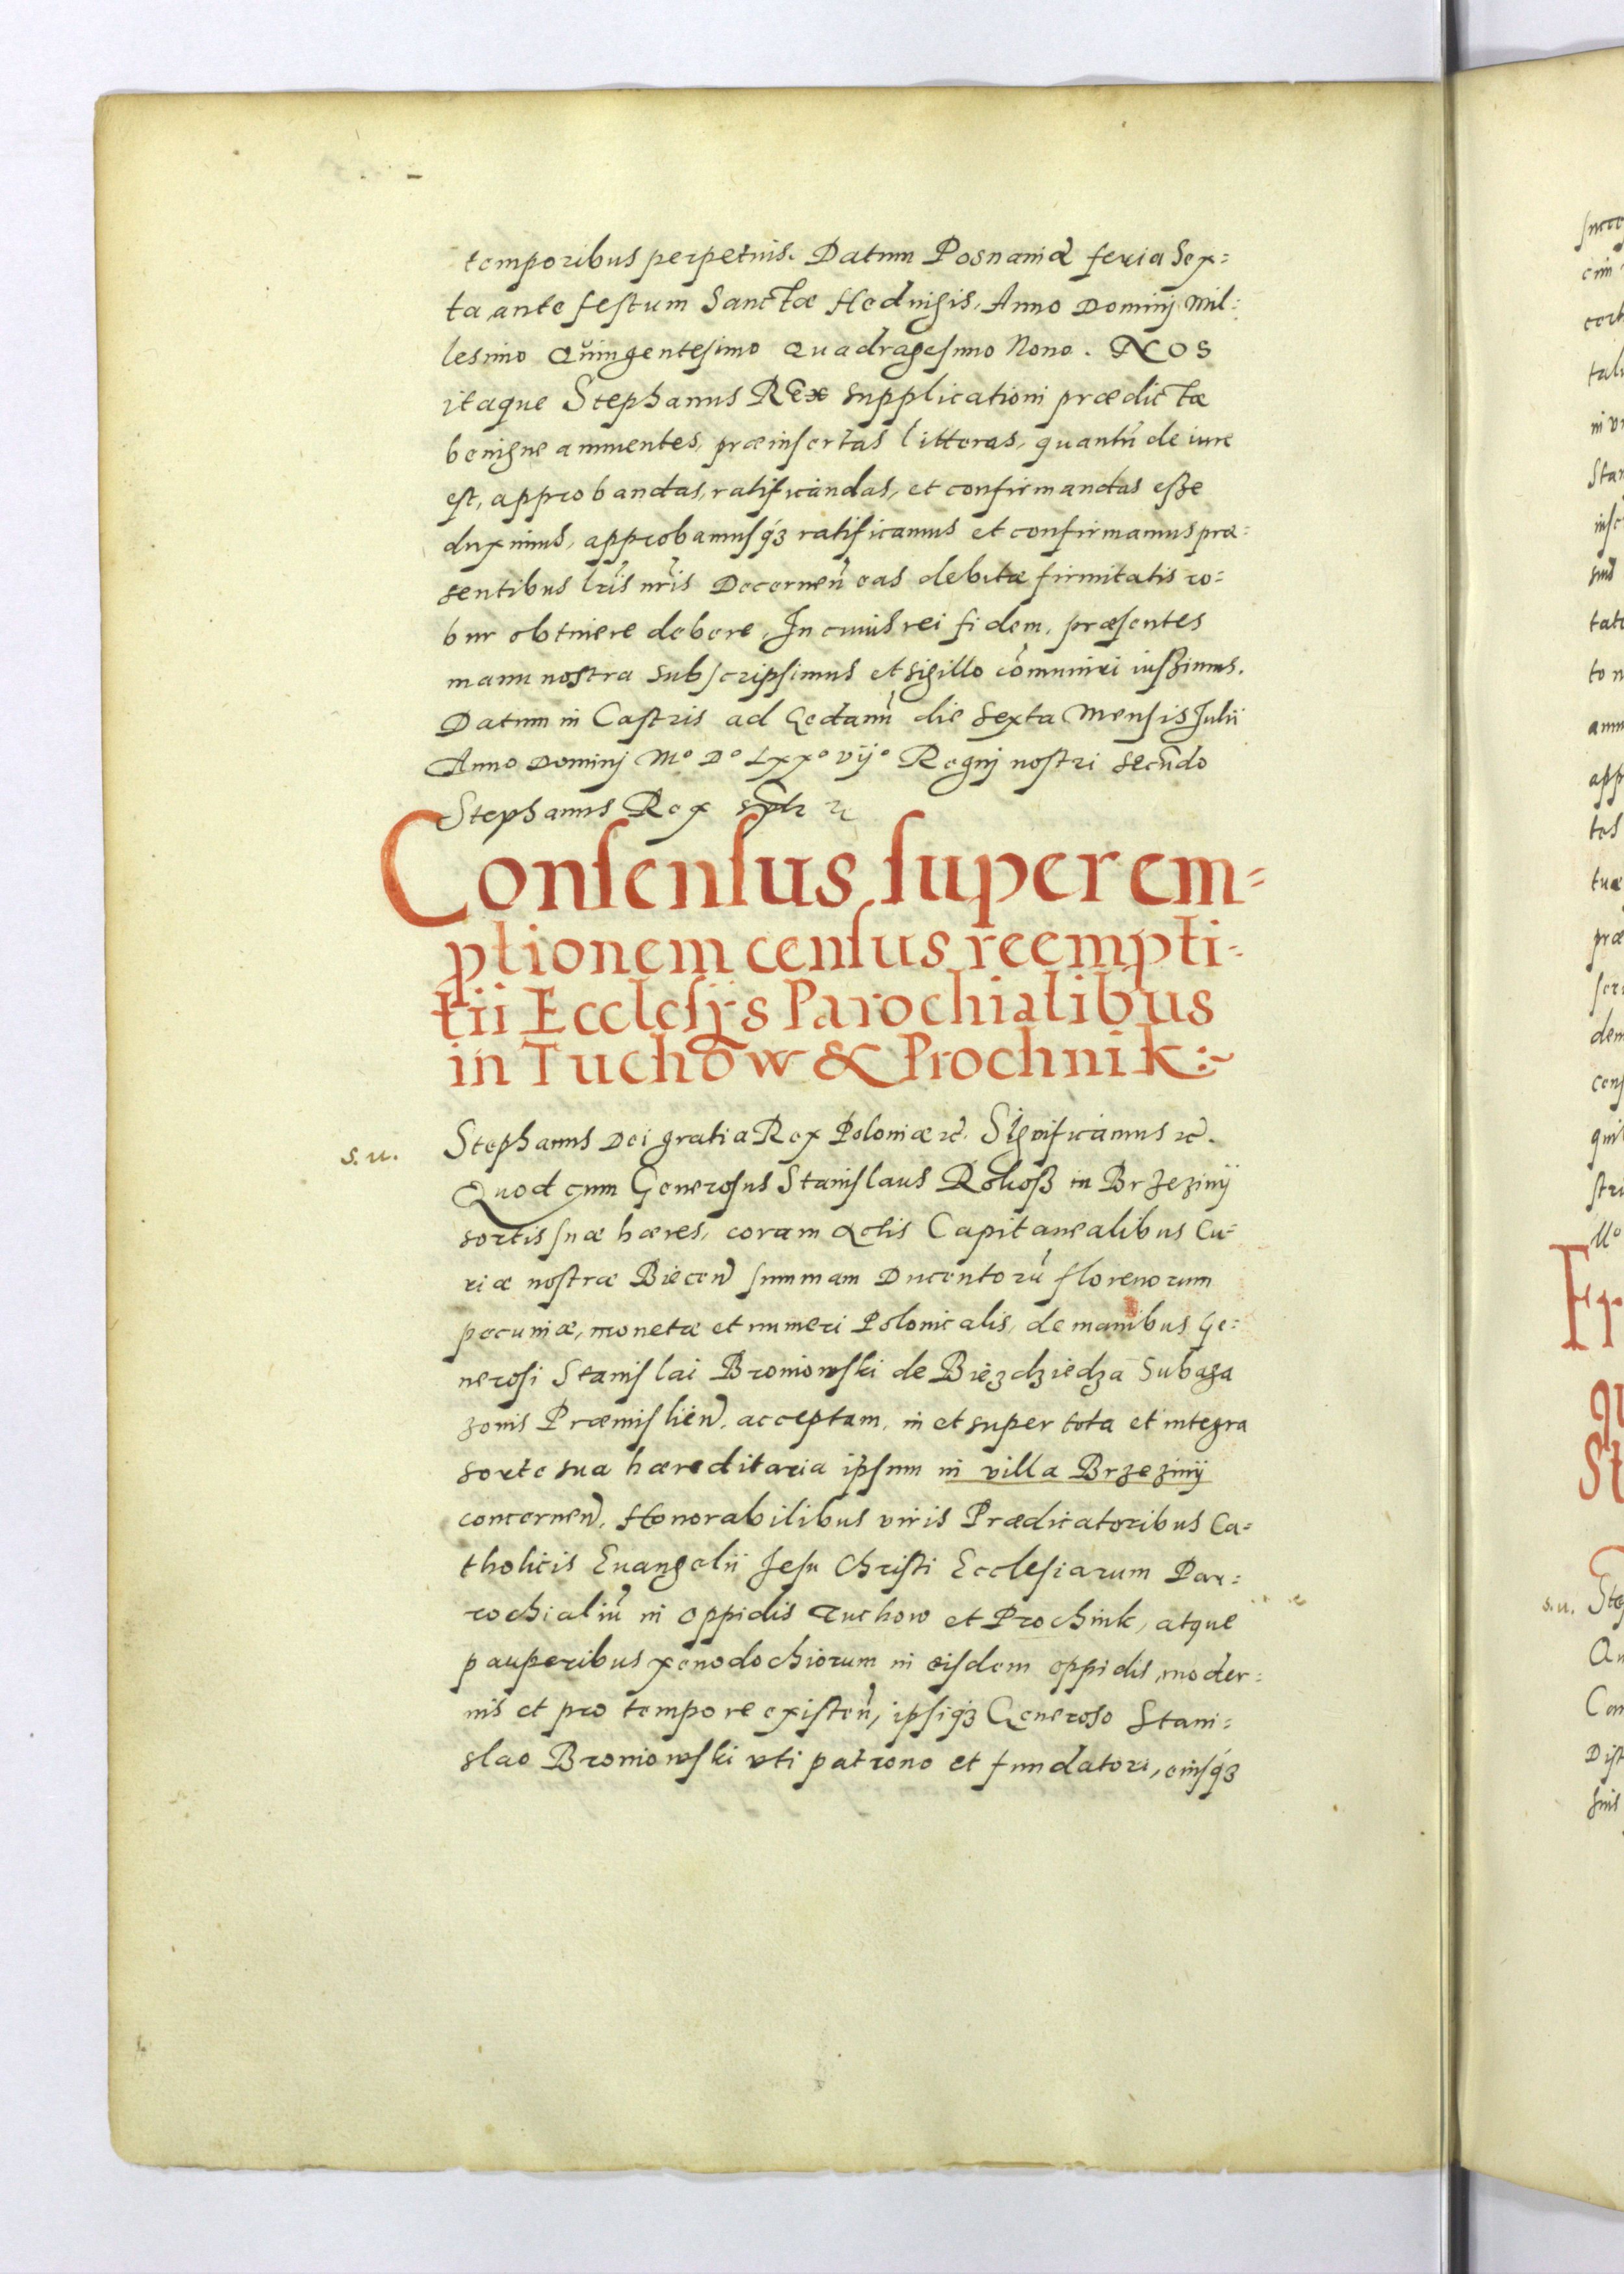 temporibus perpetuis. Datum Posnaniæ feria Sex=
ta ante festum Sanctæ Heduigis, Anno Dominij Mil=
lesimo Quingentesimo Quadragesimo Nono. NOS
itaque Stephanus REx supplicationi prædictæ
benigne annuentes, præinsertas litteras, quantũ de iure
est, approbandas, ratificandas, et confirmandas eße
duximus, approbamusq́ʒ ratificamus et confirmamus præ=
sentibus lr̃is nr̃is Decernen̄ eas debitæ firmitatis ro=
bur obtinere debere. In cuius rei fidem, præsentes
manu nostra subscripsimus et sigillo cõmuniri iußimus.
Datum in Castris ad Gedanũ die Sexta Mensis Julii
Anno Dominj Mº Dº Lxxº vijº Regnj nostri secũdo
Stephanus Rex
Consensus super em=
ptionem census reempti=
tii Ecclesijs Parochialibus
in Tuchow & Prochnik:~
s. u.
Stephanus Dei gratia Rex Poloniæ ꝛc̃. Significamus ꝛc̃.
Quod cum Generosus Stanislaus Rokoß in Brzezinij
sortis suæ hæres, coram Actis Capitanealibus Cu=
riæ nostræ Biecen̄ summam Ducentorũ florenorum
pecuniæ, monetæ et numeri Polonicalis, de manibus Ge=
nerosi Stanislai Broniowski de Biezdziedza Subaga
zonis Præmislien̄. acceptam, in et super tota et integra
sorte sua hæreditaria ipsum in villa Brzezinij
concernen̄. Honorabilibus viris Prædicatoribus Ca=
tholicis Euangelii Jesu Christi Ecclesiarum Par=
rochialiũ in oppidis Tuchow et Prochink, atque
pauperibus xenodochiorum in eisdem oppidis, moder=
nis et pro tempore existen̄, ipsiq́ʒ Generoso Stani=
slao Broniowski vti patrono et fundatori, eiusq́ʒ